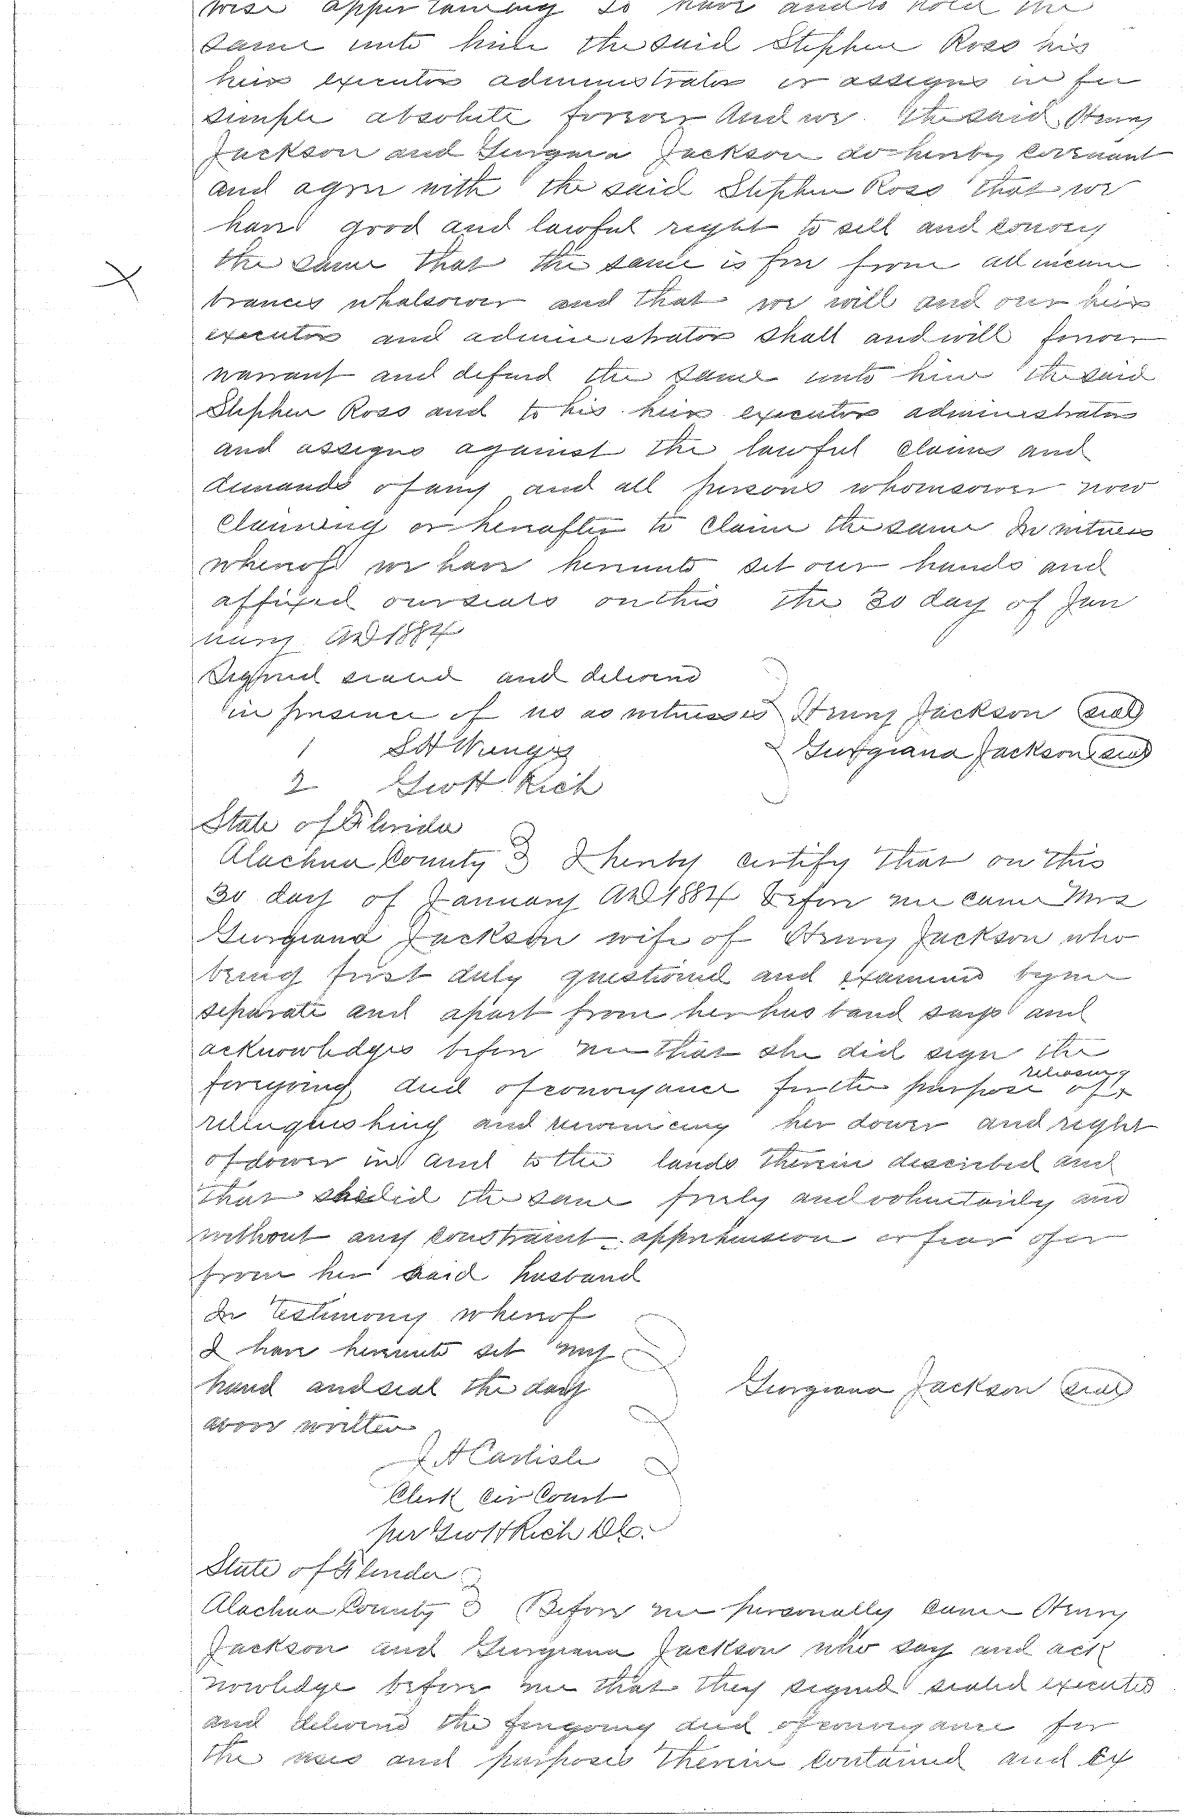 wise appertaining to have and to hold the
same unto him the said Stephen Ross his
heirs executors administrators or assigns in fee
simple absolute forever And we the said Henry
Jackson and Georgiana Jackson do hereby covenant
and agree with the said Stephen Ross that we
have good and lawful right to sell and convey
the same that the same is free from all incum
brances whatsoever and that we will and our heirs
executors and administrators shall and will forever
warrant and defend the same unto him the said
Stephen Ross and to his heirs executors administrators
and assigns against the lawful claims and
demands of any and all persons whomsoever now
claiming or hereafter to claim the same In witness
whereof we have hereunto set our hands and
affixed our seals on this the 30 day of Jan
uary AD 1884
Signed sealed and delivered
in presence of us as witnesses Henry Jackson seal
1 S H Georgiana Jackson seal
2 Geo H Rich
State of Florida
Alachua County I hereby certify that on this
30 day of January AD 1884 before me came Mrs
Georgiana Jackson wife of Henry Jackson who
being first duly questioned and examined by me
separate and apart from her husband says and
acknowledges before me that she did sign the
foregoing deed of conveyance for the purpose of releasing
relinquishing and renouncing her dower and right
of dower in and to the lands therein described and
that she did the same freely and voluntarily and
without any constraint apprehension or fear of or
from her said husband
In testimony whereof
I have hereunto set my
hand and seal the day Georgiana Jackson seal
above written
J A Carlisle
Clerk Cir Court
per Geo H Rich DC.
State of Florida
Alachua County Before me personally came Henry
Jackson and Georgiana Jackson who say and ack
nowledge before me that they signed sealed executed
and delivered the foregoing deed of conveyance for
the uses and purposes therein contained and ex